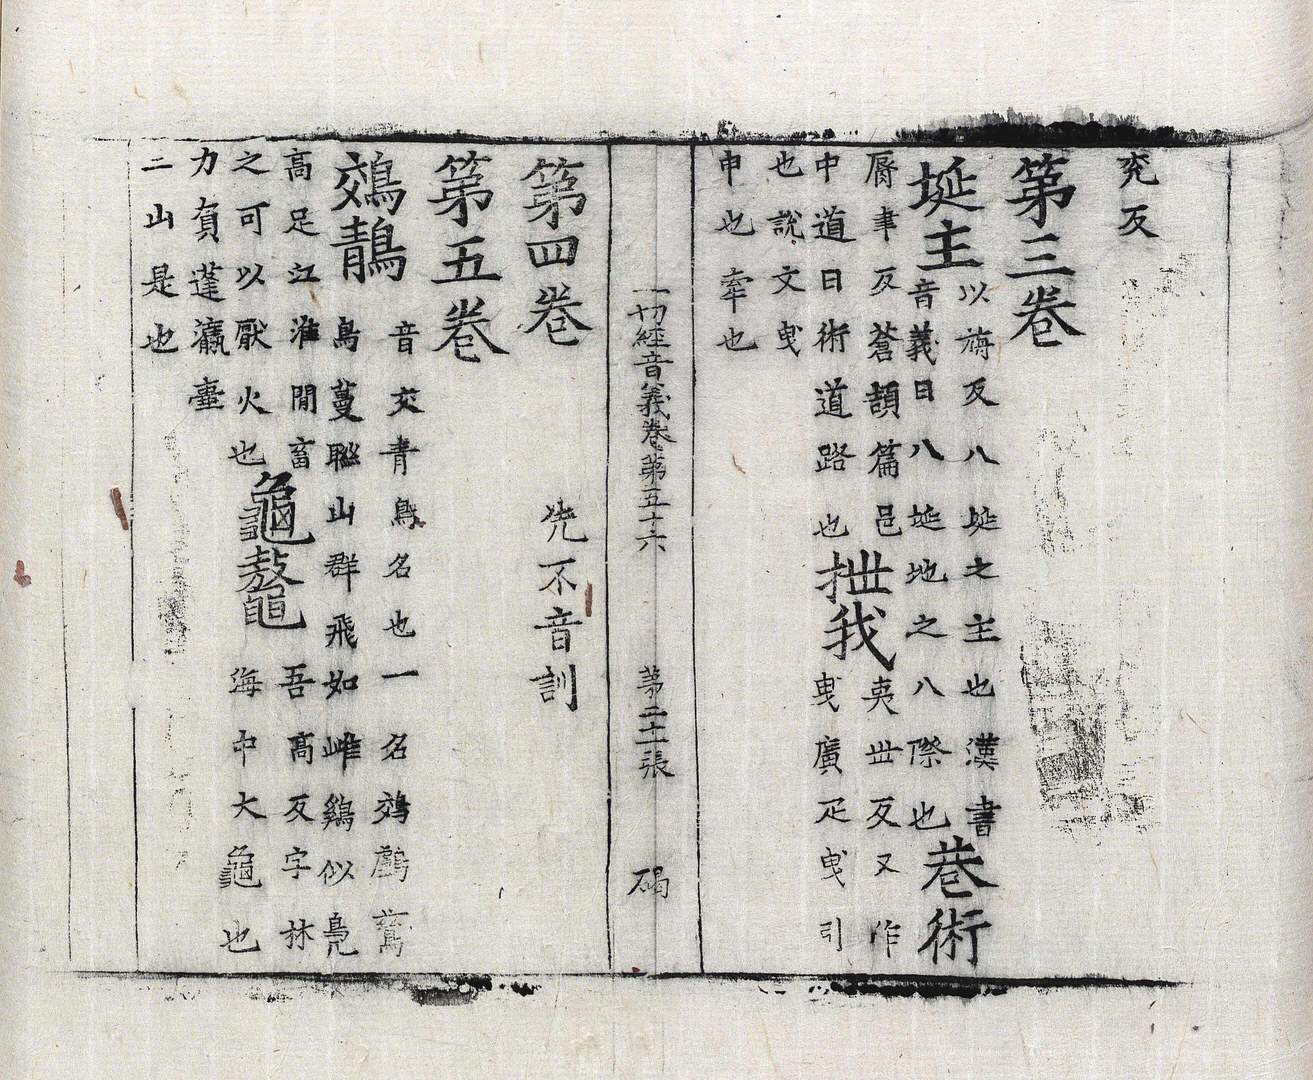 兖反
第三卷
埏主 以旃反八埏之主也漢書
音義曰八埏地之八際也 巷術
脣聿反蒼頡篇邑
中道曰術道路也 抴我 夷世反又作
曳廣疋曳引
也說文曳
申也牽也
一切經音義卷第五十六 第二十一張 碣
第四卷 先不音訓
第五卷
鵁鶄 音交青鳥名也一名鵁鸕鶿
鳥蔓聮山群飛如雌鷄似鳧
高足江淮閒畜
之可以厭火也 龜鼇 吾高反字林
海中大龜也
力負蓬瀛壺
二山是也